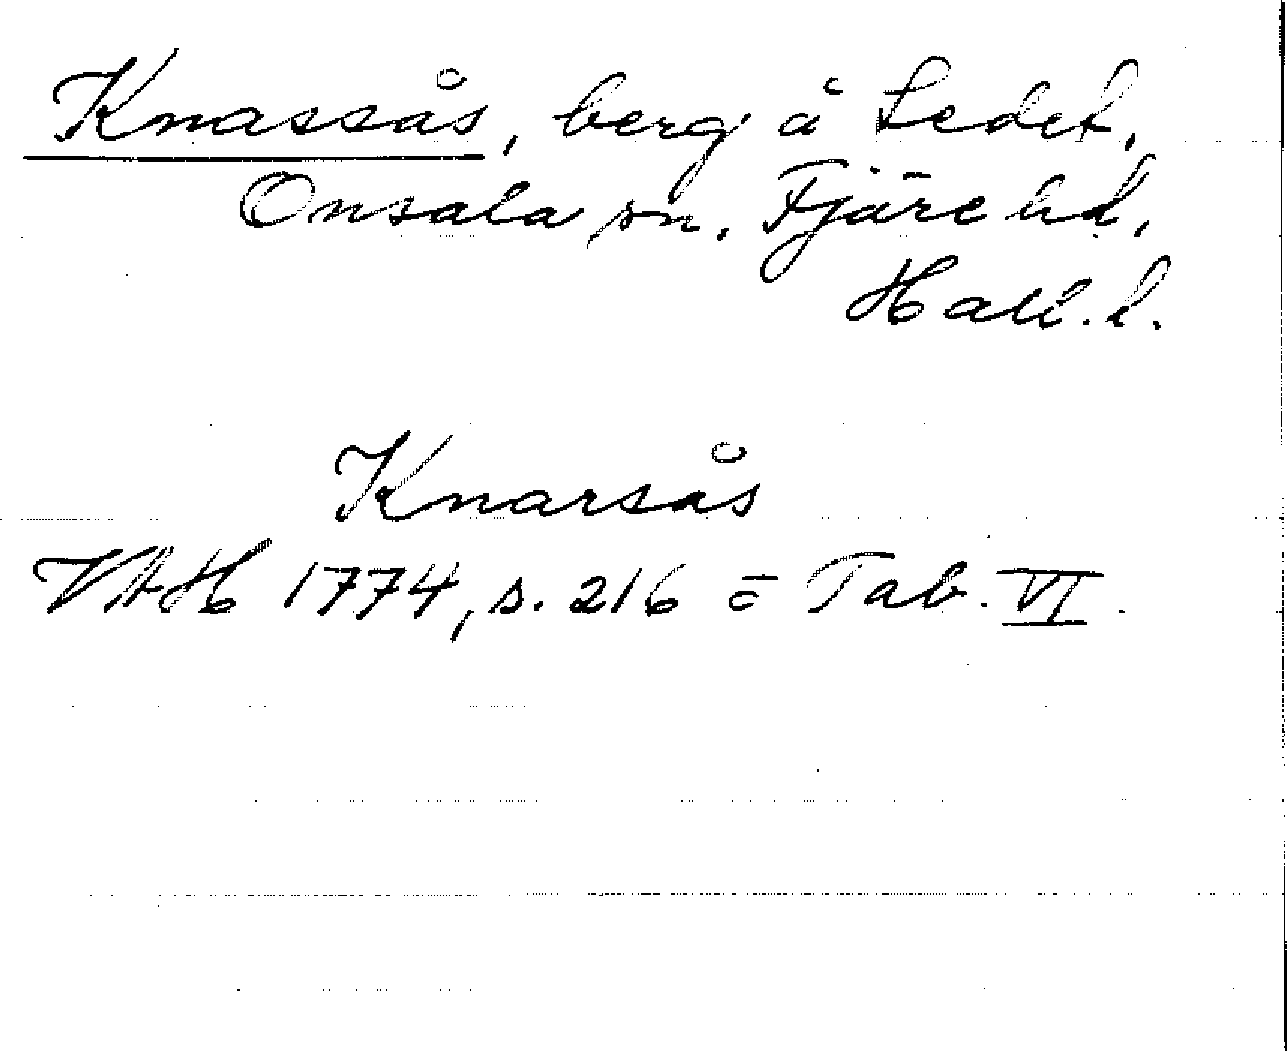 Knassås, berg å Ledet,
Onsala sn, Fjäre hd,
Hall. l.
Knarsås
VAH 1774, s. 216 o Tab. VI.